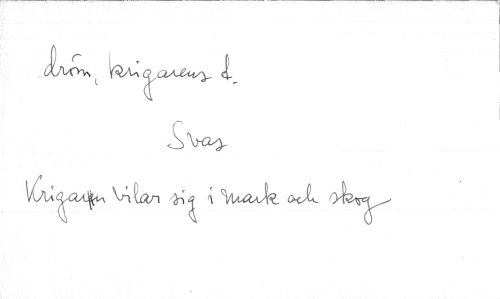 dröm, krigarens d.
Svas
Krigaren vilar sig i mark och skog